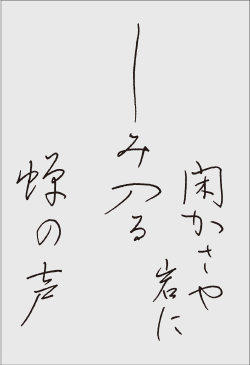 閑かさや
岩に
しみ入る
蝉の声